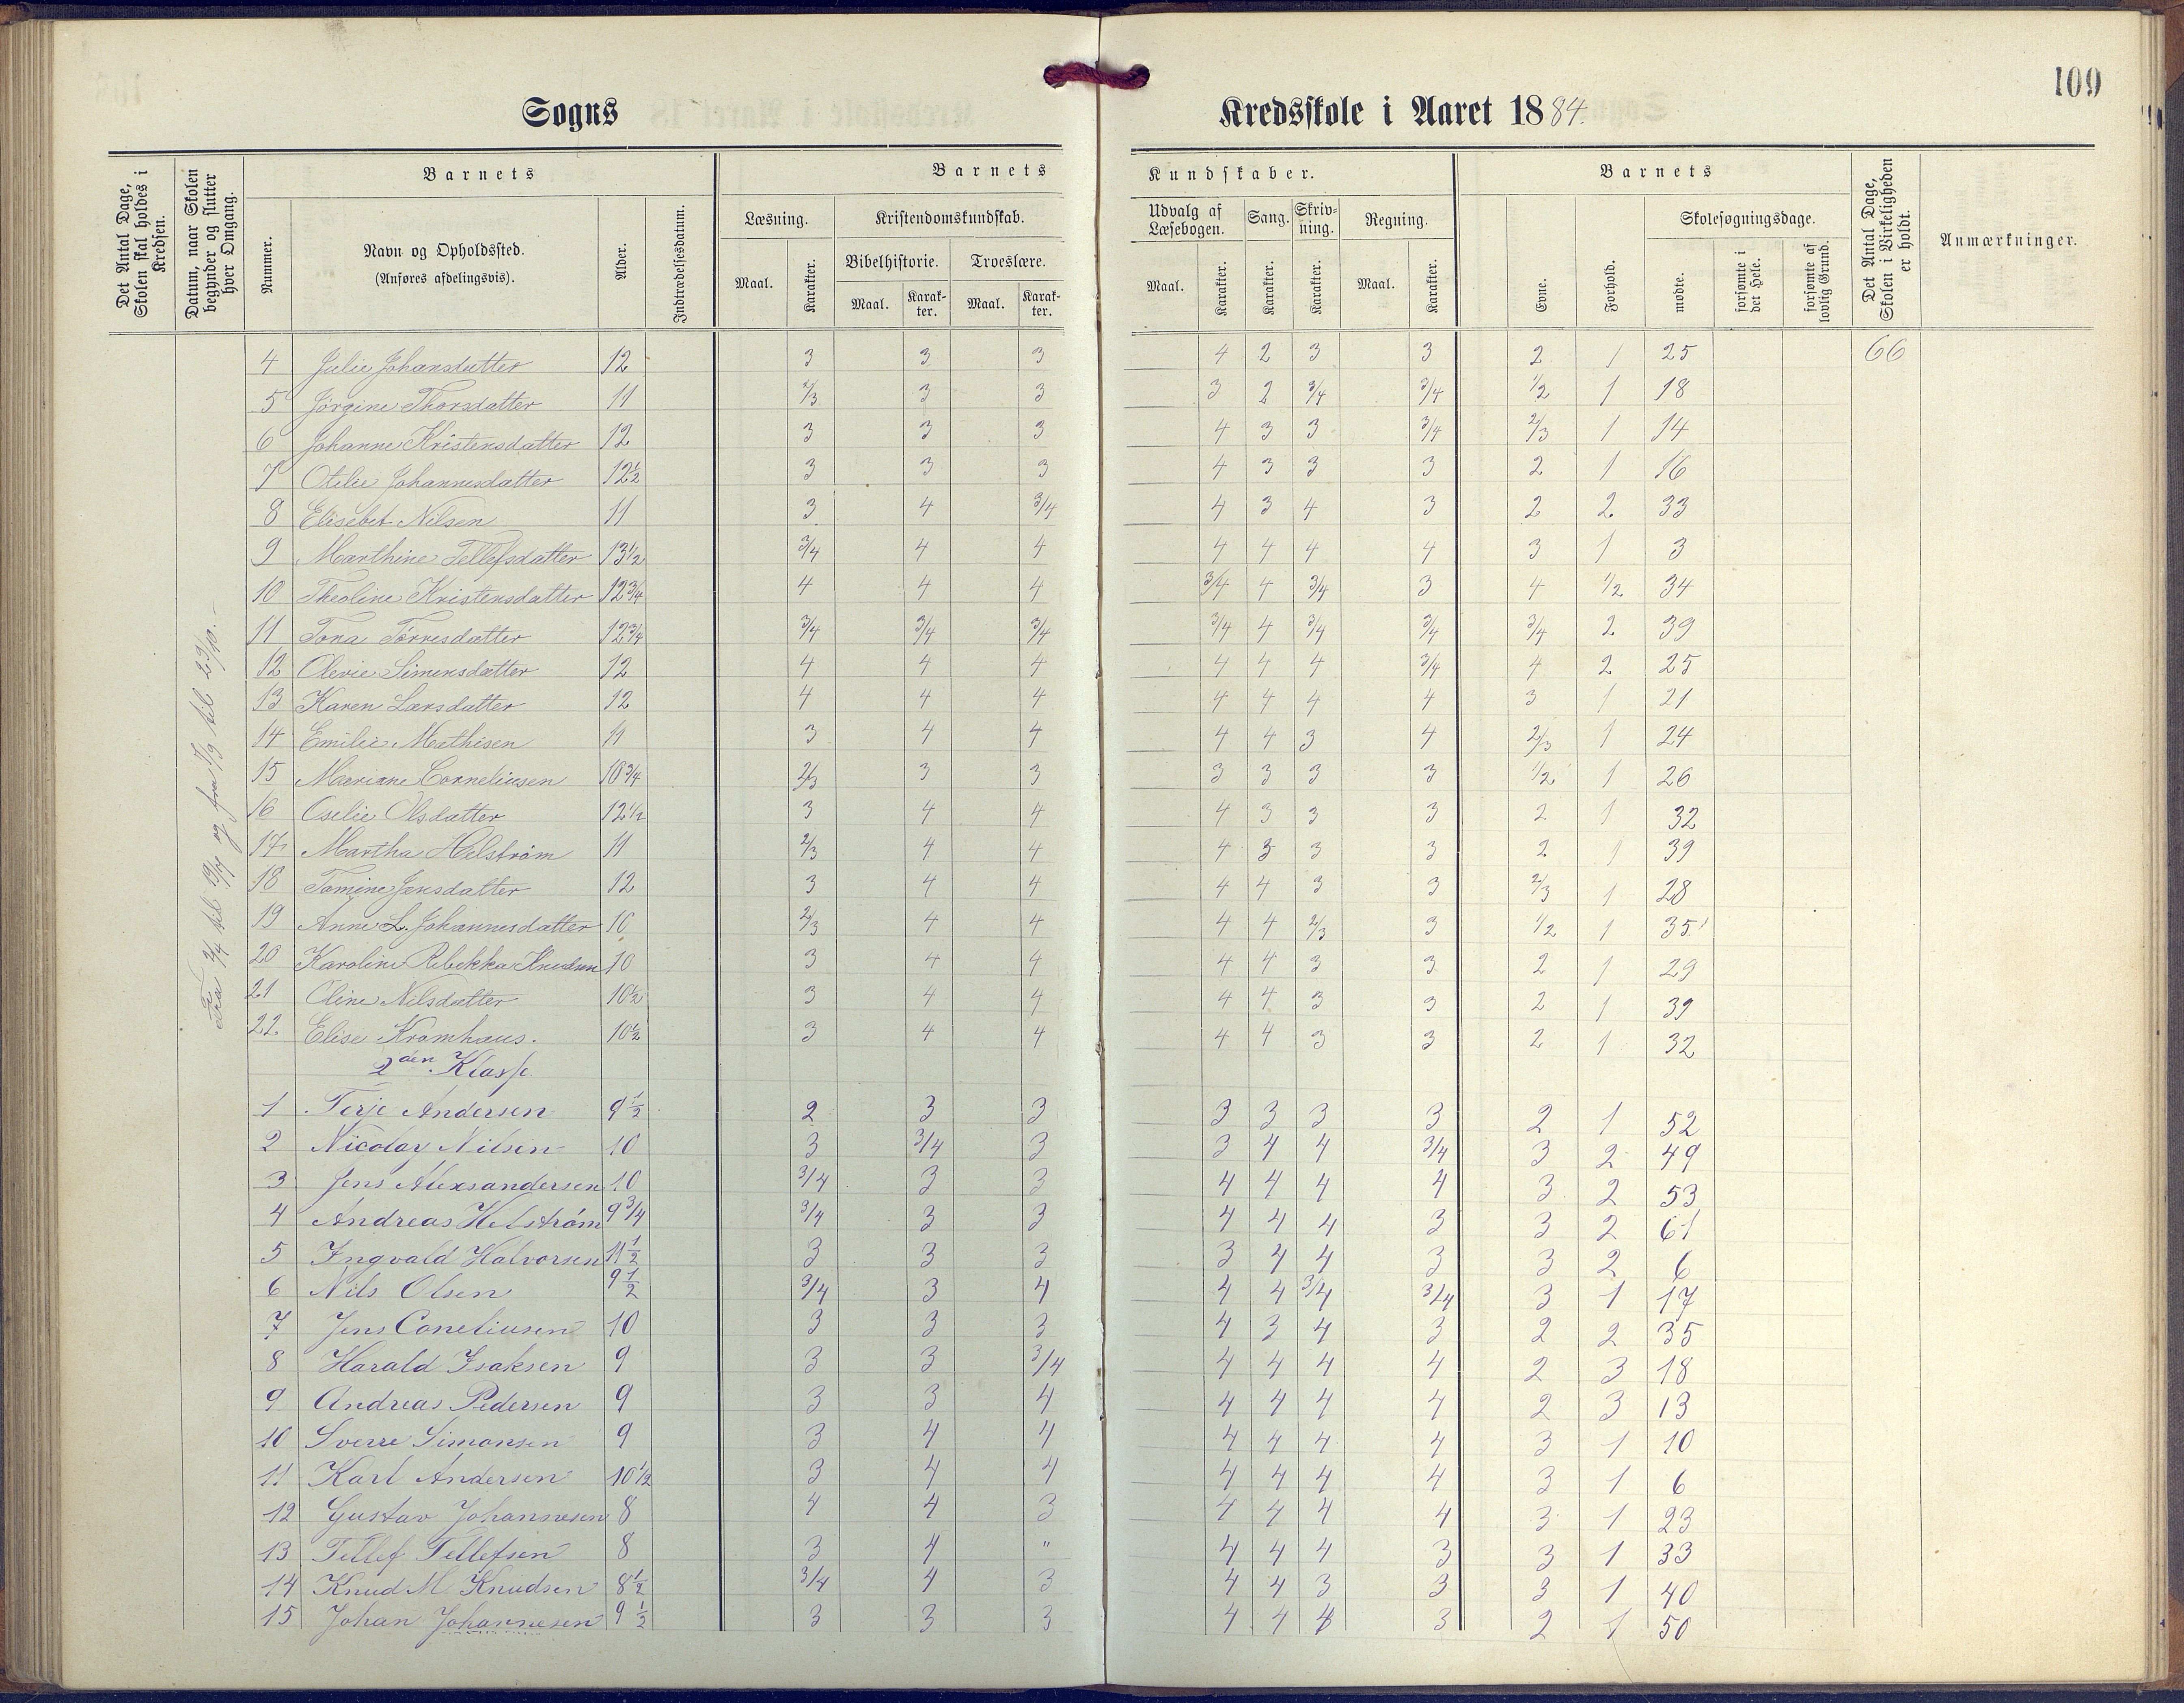 109
Sogns Kredsskole i Aaret 1884.
Det Antal Dage, Skolen skal holdes i Kredsen.
Datum, naar Skolen begynder og slutter hver Omgang.
Barnets
Nummer.
Navn og Opholdssted.
(Anføres afdelingsvis).
Alder.
Indtrædelsesdatum.
Barnets Kundskaber.
Læsning.
Maal.
Karakter.
Kristendomskundskab.
Bibelhistorie.
Maal.
Karakter.
Troeslære.
Maal.
Karakter.
Udvalg af Læsebogen.
Maal.
Karakter.
Sang.
Karakter.
Skrivning.
Karakter.
Regning.
Maal.
Karakter.
Barnets
Evne.
Forhold.
Skolesøgningsdage.
mødte.
forsømte i det Hele.
forsømte af lovlig Grund.
Det Antal Dage, Skolen i Virkeligheden er holdt.
Anmærkninger.
4 Julie Johansdatter 12 3 3 3 4 2 3 3 2 1 25 66
5 Jørgine Thorsdatter 11 2/3 3 3 3 2 3/4 3/4 1/2 1 18
6 Johanne Kristensdatter 12 3 3 3 4 3 3 3/4 2/3 1 14
7 Otilie Johannesdatter 12½ 3 3 3 4 3 3 3 2 1 16
8 Elisebet Nilsen 11 3 4 3/4 4 3 4 3 2 2 33
9 Marthine Tellefsdatter 13½ 3/4 4 4 4 4 4 4 3 1 3
10 Theoline Kristensdatter 12¾ 4 4 4 3/4 4 3/4 3 4 1/2 34
11 Tona Tørresdatter 12¾ 3/4 3/4 3/4 3/4 4 3/4 3/4 3/4 2 39
12 Olevie Simensdatter 12 4 4 4 4 4 4 3/4 4 2 25
13 Karen Larsdatter 12 4 4 4 4 4 4 4 3 1 21
14 Emilie Mathisen 11 3 4 4 4 4 3 4 2/3 1 24
15 Mariane Corneliusen 10¾ 2/3 3 3 3 3 3 3 1/2 1 26
16 Oselie Olsdatter 12½ 3 4 4 4 3 3 3 2 1 32
17 Martha Helstrøm 11 2/3 4 4 4 3 3 3 2 1 39
18 Tomine Jensdatter 12 3 4 4 4 4 3 3 2/3 1 28
19 Anne L. Johannesdatter 10 2/3 4 4 4 4 2/3 3 1/2 1 35
20 Karoline Rebekka Knudsen 10 3 4 4 4 4 3 3 2 1 29
21 Oline Nilsdatter 10½ 3 4 4 4 4 3 3 2 1 39
22 Elise Kromhaus. 10½ 3 4 4 4 4 3 3 2 1 32
2den Klasse
1 Terje Andersen 9½ 2 3 3 3 3 3 3 2 1 52
2 Nicolay Nilsen 10 3 3/4 3 3 4 4 3/4 3 2 49
3 Jens Alexsandersen 10 3/4 3 3 4 4 4 4 3 2 53
4 Andreas Helstrøm 9¾ 3/4 3 3 4 4 4 3 3 2 61
5 Ingvald Halvorsen 11½ 3 3 3 3 4 4 3 3 2 6
6 Nils Olsen 9½ 3/4 3 4 4 4 3/4 3/4 3 1 17
7 Jens Coneliusen 10 3 3 3 4 3 4 3 2 2 35
8 Harald Isaksen 9 3 3 3/4 4 4 4 4 2 3 18
9 Andreas Pedersen 9 3 3 4 4 4 4 4 2 3 13
10 Sverre Simonsen 9 3 4 4 4 4 4 4 3 1 10
11 Karl Andersen 10½ 3 4 4 4 4 4 4 3 1 6
12 Gustav Johannesen 8 4 4 3 4 4 4 4 3 1 23
13 Tellef Tellefsen 8 3 4 " 4 4 4 3 3 1 33
14 Knud M. Knudsen 8½ 3/4 4 3 4 4 3 3 3 1 40
15 Johan Johannesen 9½ 3 3 3 4 4 4 3 2 1 50